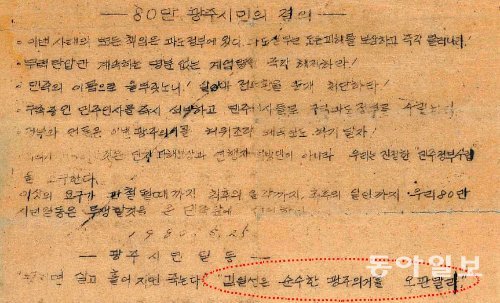 — 80만 광주시민의 결의 —
· 이번 사태의 모든 책임은 과도정부에 있다. 과도정부는 모든 피해를 보상하고 즉각 물러나라!
· 무력탄압만 계속하는 명분없는 계엄령은 즉각 해제하라!
· 민족의 이름으로 울부짖노니! 살인마 전두환을 공개 처단하라!
· 구속중인 민주인사를 즉시 석방하고 민주인사들로 구국과도정부를 수립하라!
· 정부와 언론은 이번 광주의거를 허위조작
것은 단지 피해보상과 아니라 우리는 진정한 민주정부수립
을 요구한다.
이상의 요구가 관철될때까지 최후의 일각까지 최후의 일인까지 우리 80만
시민일동은 투쟁할것을 온 민족앞에
1980. 5. 25
— 광주시민 일동 —
살고 흩어지면 죽는다 김일성은 순수한 광주의거를 오판말라
동아일보